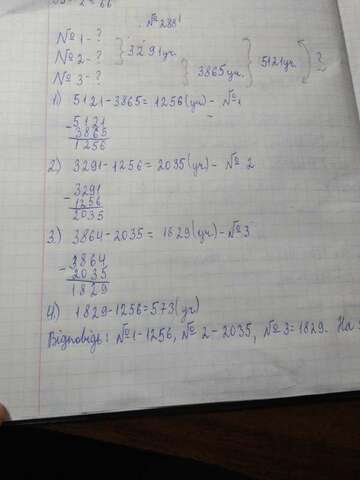 = 66
№288
№ 1-?
№ 2-? 3291уч.
№ 3-? 3865уч. 5121уч. ?
1) 5121-3865=1256(уч)-№1
-5121
3865
1256
2) 3291-1256=2035(уч)-№ 2
-3291
1256
2035
3) 3864-2035=1829(уч)-№3
-3864
2035
1829
4) 1829-1256=573(уч)
Відповідь: №1-1256, № 2-2035, №3=1829. На